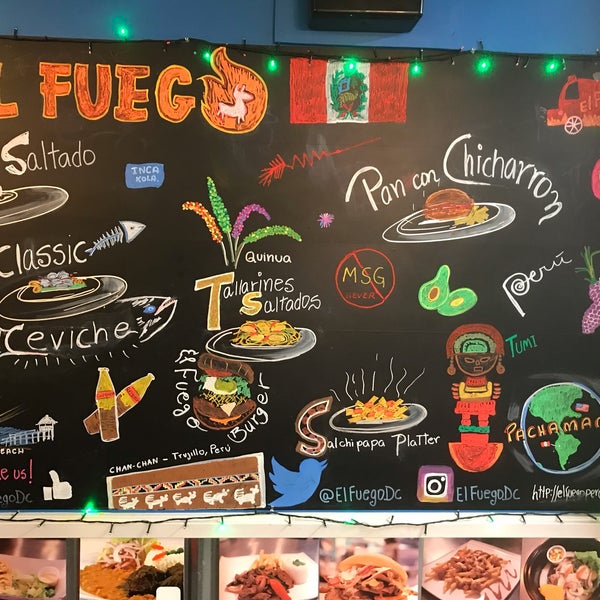 L FUEGO
Saltado
INCA
KOLA
Classic
Ceviche
Quinua
Tallarines
Saltados
Pan con Chicharron
MSG
NEVER
Perú
TUMI
El Fuego
Burger
Salchipapa Platter
PACHAMA
EACH
e us!
FuegoDC
CHAN-CHAN - Trujillo, Perú
@ElFuegoDC
ElFuegoDC